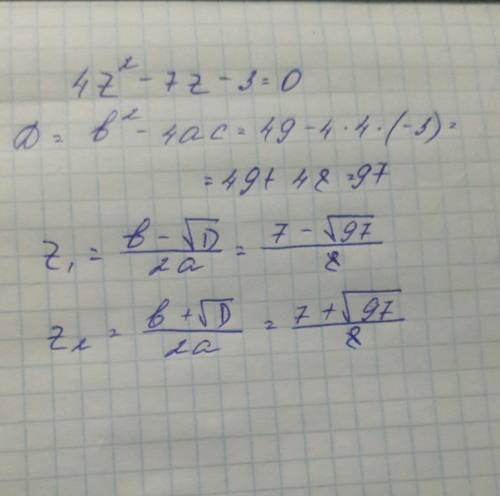 4z² - 7z - 3 = 0
D = b² - 4ac = 49 - 4 · 4 · (-3) =
= 49 + 48 = 97
z₁ = (b - √D)/(2a) = (7 - √97)/8
z₂ = (b + √D)/(2a) = (7 + √97)/8